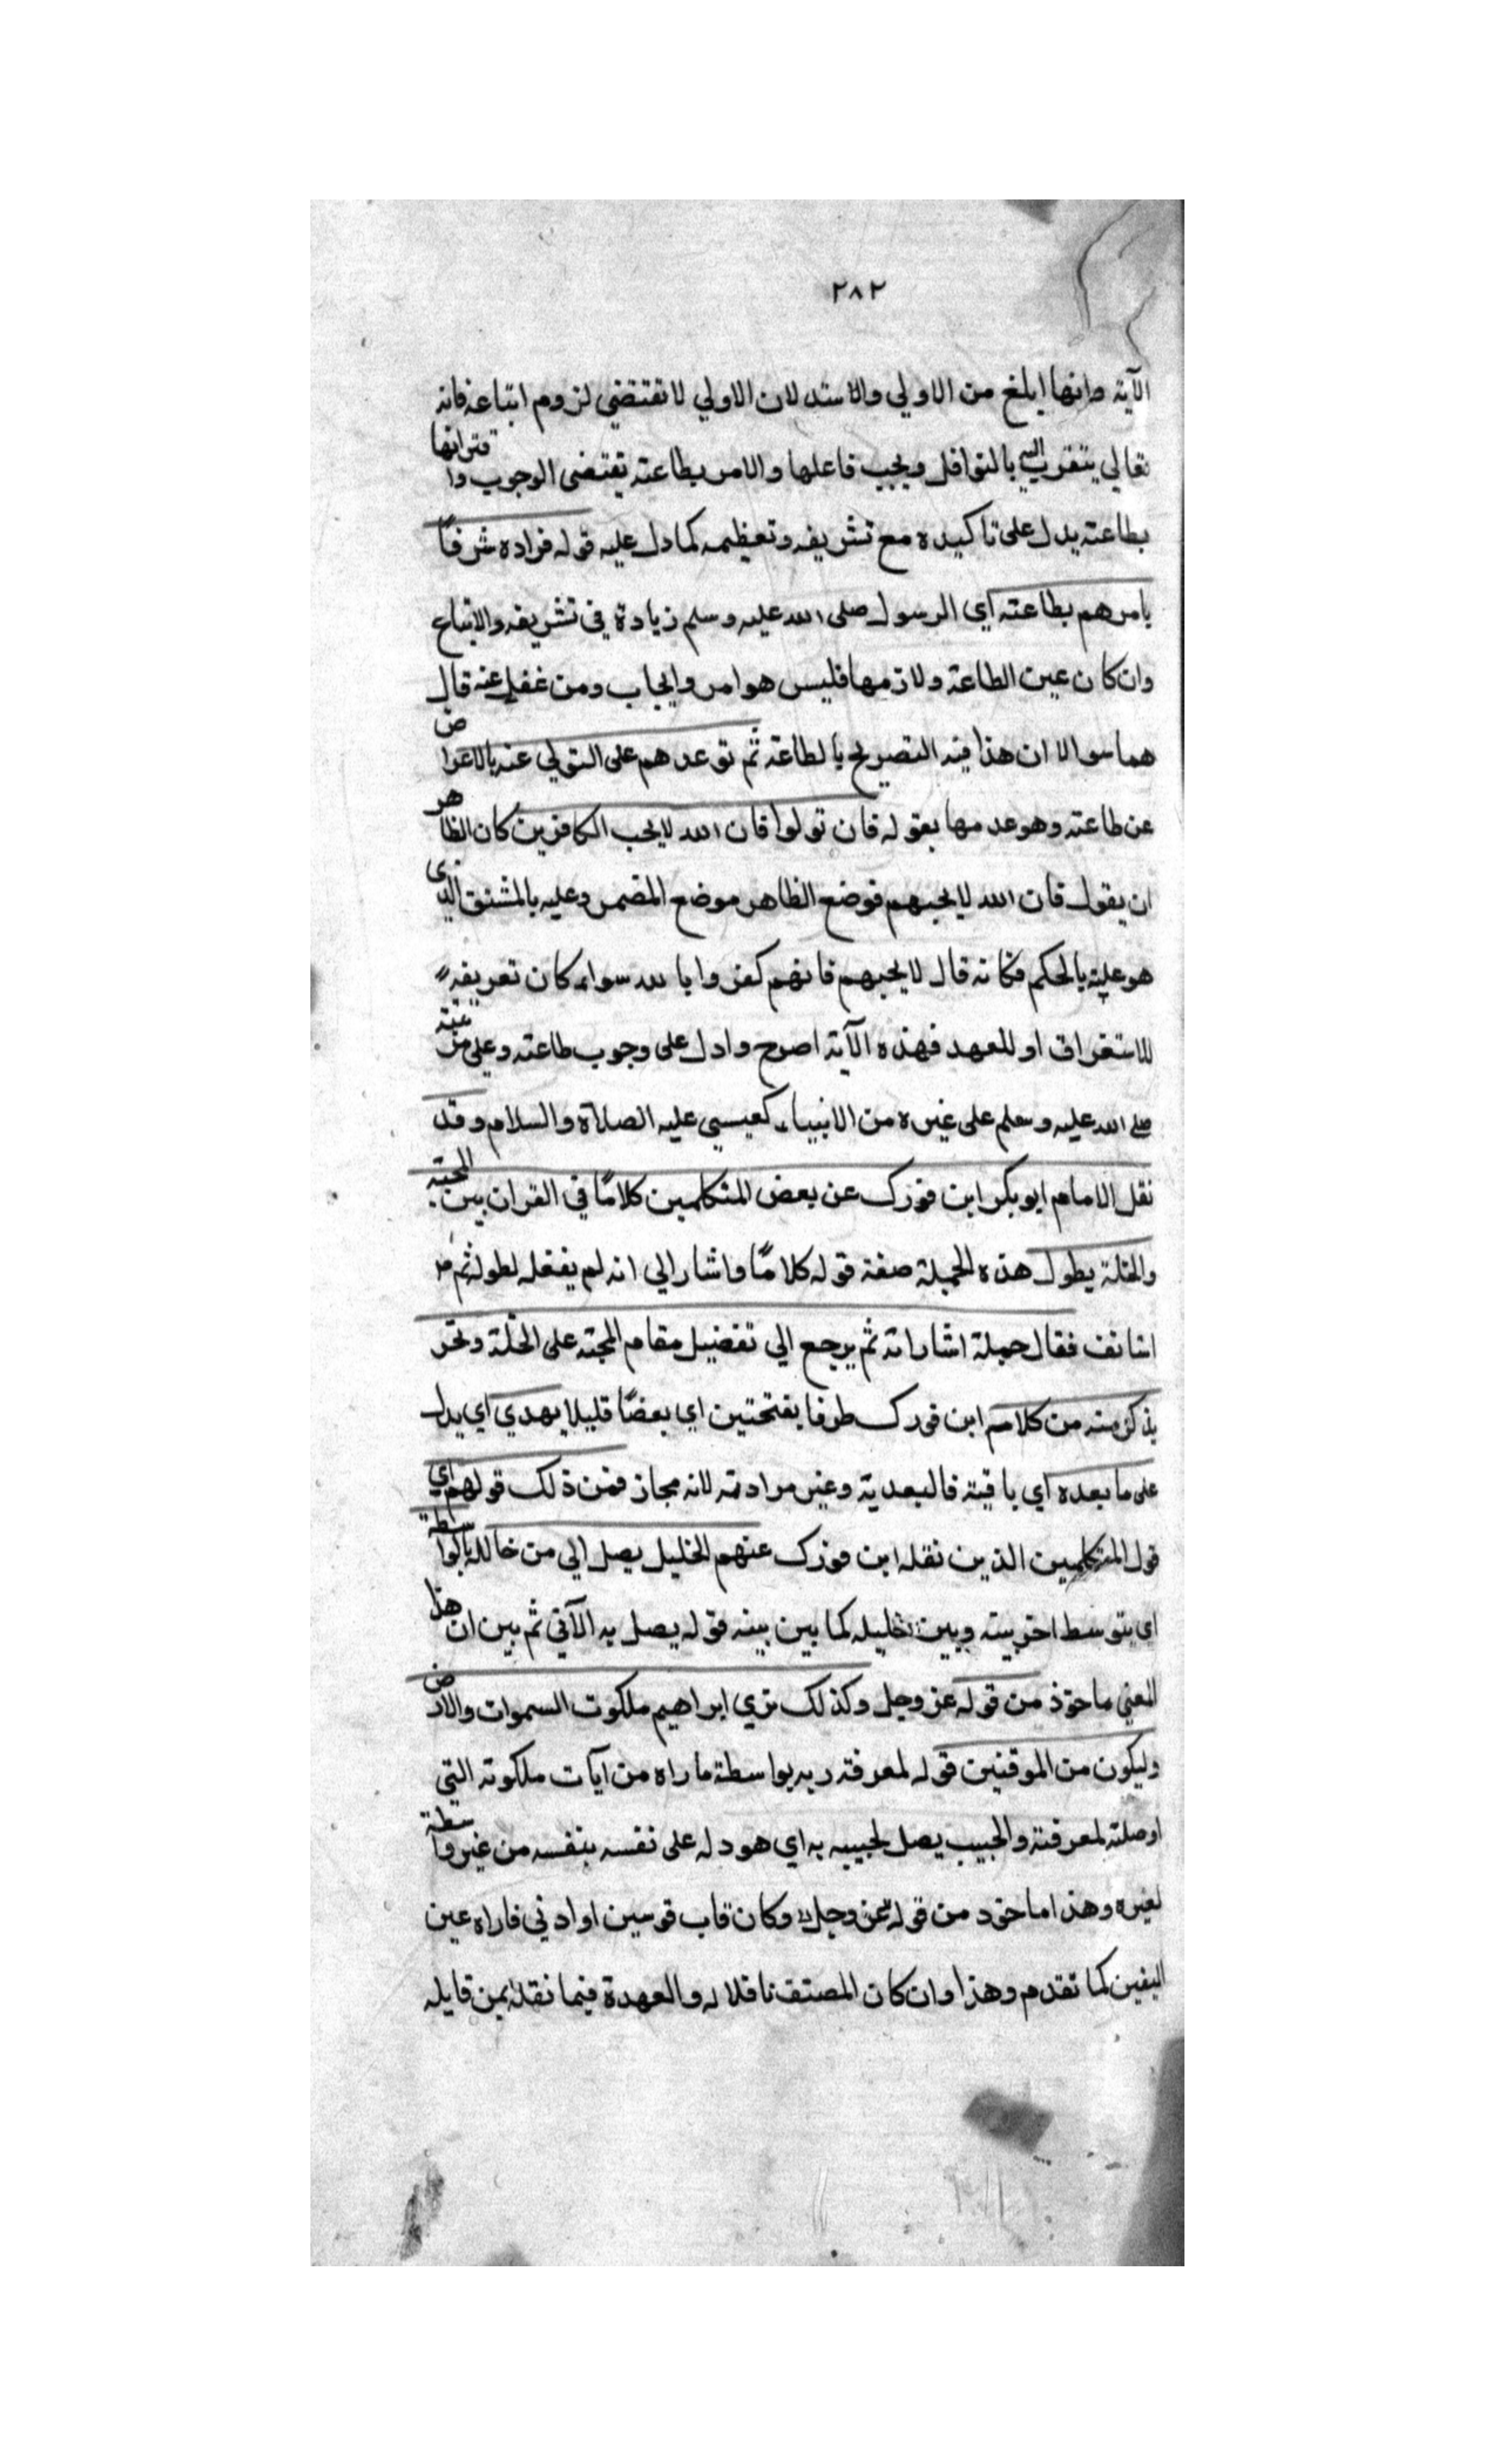 ٢٨٢
الآية وانها ابلغ من الاولي والاستد لان الاولي لا تقتضي لزوم اتباعه فانه
تعالي يتقرب اليه بالنوافل ويجب فاعلها والامر بطاعته يقتضي الوجوب واقترانها
بطاعته يدل على تاكيده مع تشريفه وتعظيمه كما دل عليه قوله فزاده شرفًا
بامرهم بطاعته اي الرسول صلى الله عليه وسلم زيادة في تشريفه والاتباع
وان كان عين الطاعة ولازمها فليس هو امر وايجاب ومن غفل عنه قال
هما سوا الا ان هذا فيه التصريح بالطاعة ثم توعدهم على التولي عنه بالاعراض
عن طاعته وهو عدمها بقوله فان تولوا فان الله لا يحب الكافرين كان الظاهر
ان يقول فان الله لا يحبهم فوضع الظاهر موضع المضمر وعليه بالمشتق الذي
هو علية بالحكم فكانه قال لا يحبهم فانهم كفروا بالله سواء كان تعريفه
للاستغراق او للعهد فهذه الآية اصرح وادل على وجوب طاعته وعلى مرتبته
صلى الله عليه وسلم على غيره من الانبياء كعيسي عليه الصلاة والسلام وقد
نقل الامام ابو بكر ابن فورك عن بعض المتكلمين كلامًا في القران بين المحبة
والخلة يطول هذه الجملة صفة قوله كلامًا واشار الي انه لم يفعله لطوله ثم
استانف فقال جملة اشاراته ثم يرجع الي تفضيل مقام المحبة على الخلّة ونحن
نذكر منه من كلامه ابن فورك طرفا بفتحتين اي بعضًا قليلا يهدي اي يدل
على ما بعده اي باقيته فالبعدية وغير مرادته لانه مجاز فمن ذلك قولهم اي
قول المتكلمين الذين نقله ابن فورك عنهم الخليل يصل الي من خالله بالواسطة
اي بتوسط اخر بينه وبين خليله كما بين بينه قوله يصل به الآتي ثم بين ان هذا
المعني ماخوذ من قوله عز وجل وكذلك نري ابراهيم ملكوت السموات والارض
وليكون من الموقنين قوله لمعرفة ربه بواسطة ما راه من آيات ملكوته التي
اوصلته لمعرفته والحبيب يصل لحبيبه به اي هو دله على نفسه بنفسه من غير واسطة
لغيره وهذا ماخوذ من قوله عز وجل وكان قاب قوسين او ادني فاراه عين
اليقين كما تقدم وهذا وان كان المصنف ناقلا له والعهدة فيما نقله من قايله